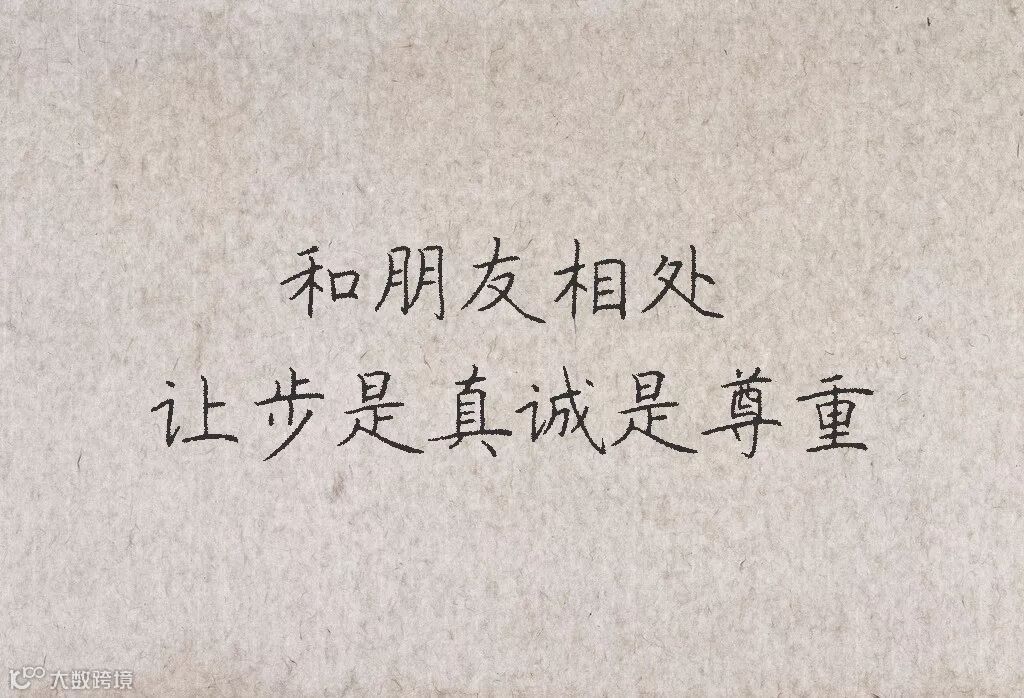 和朋友相处
让步是真诚是尊重
大数跨境